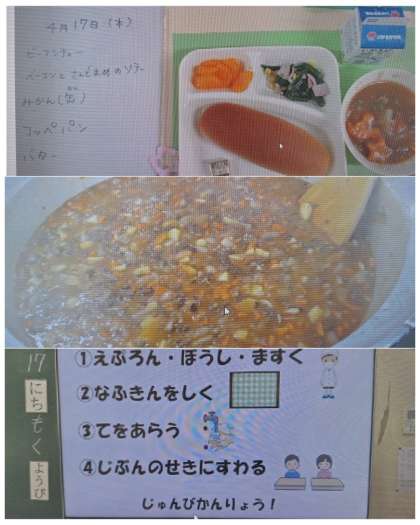 4月17日(木)
ビーフシチュー
ベーコンと
のソテー
みかん(缶)
コッペパン
バター
17
にち
もく
ようび
①えぷろん・ぼうし・ますく
②なふきんをしく
③てをあらう
④じぶんのせきにすわる
じゅんびかんりょう!